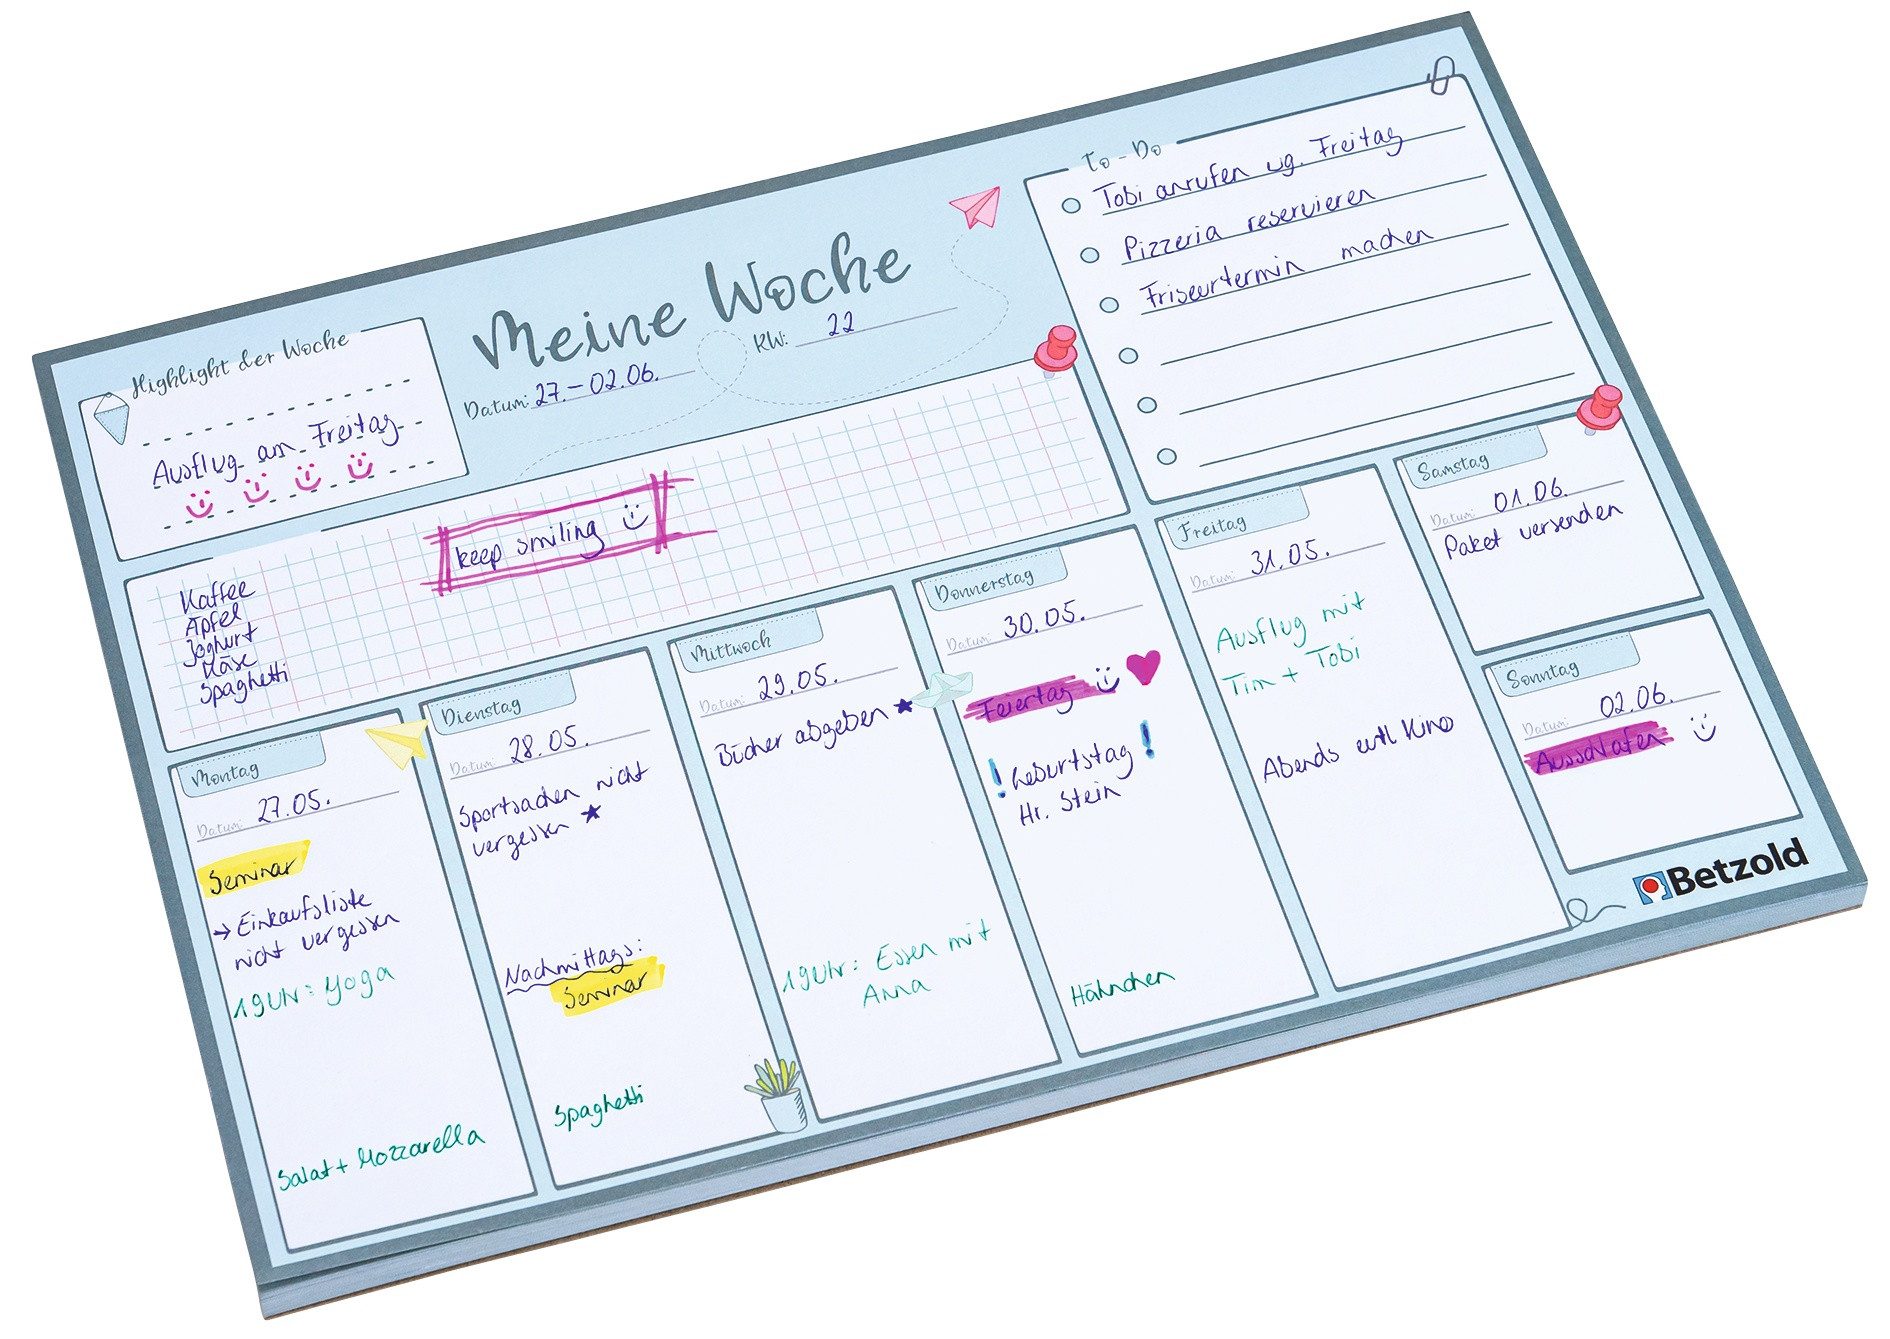 Highlight der Woche
Ausflug am Freitag
Meine Woche
Datum: 27.–02.06.
KW: 22
To-Do
Tobi anrufen wg. Freitag
Pizzeria reservieren
Friseurtermin machen
keep smiling
Kaffee
Äpfel
Joghurt
Käse
Spaghetti
Montag
Datum: 27.05.
Seminar
→ Einkaufsliste
nicht vergessen
19 Uhr: Yoga
Salat + Mozzarella
Dienstag
Datum: 28.05.
Sportsachen nicht
vergessen ★
Nachmittags:
Seminar
Spaghetti
Mittwoch
Datum: 29.05.
Bücher abgeben ★
19 Uhr: Essen mit
Anna
Donnerstag
Datum: 30.05.
Feiertag
! Geburtstag !
Hr. Stein
Hähnchen
Freitag
Datum: 31.05.
Ausflug mit
Tim + Tobi
Abends evtl Kino
Samstag
Datum: 01.06.
Paket versenden
Sonntag
Datum: 02.06.
Ausschlafen
Betzold